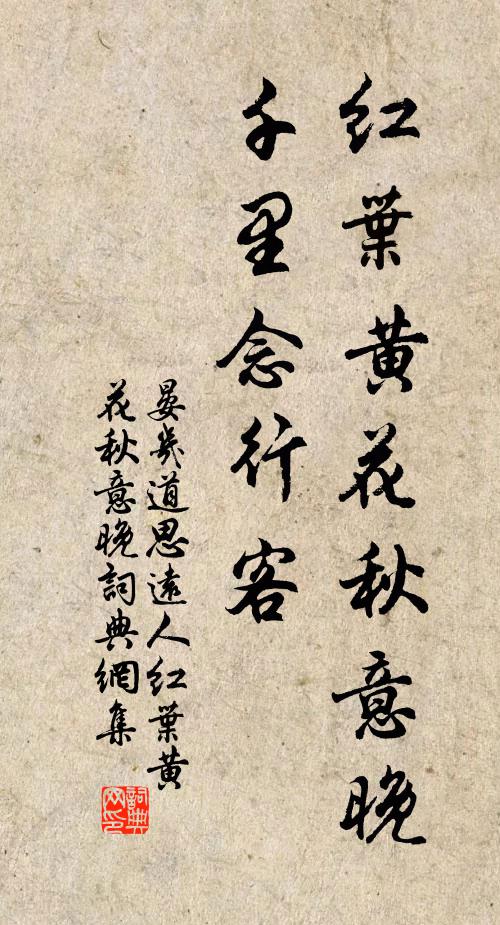 紅葉黃花秋意晚
千里念行客
晏幾道思遠人紅葉黃
花秋意晚詞典網集
詞典
网印